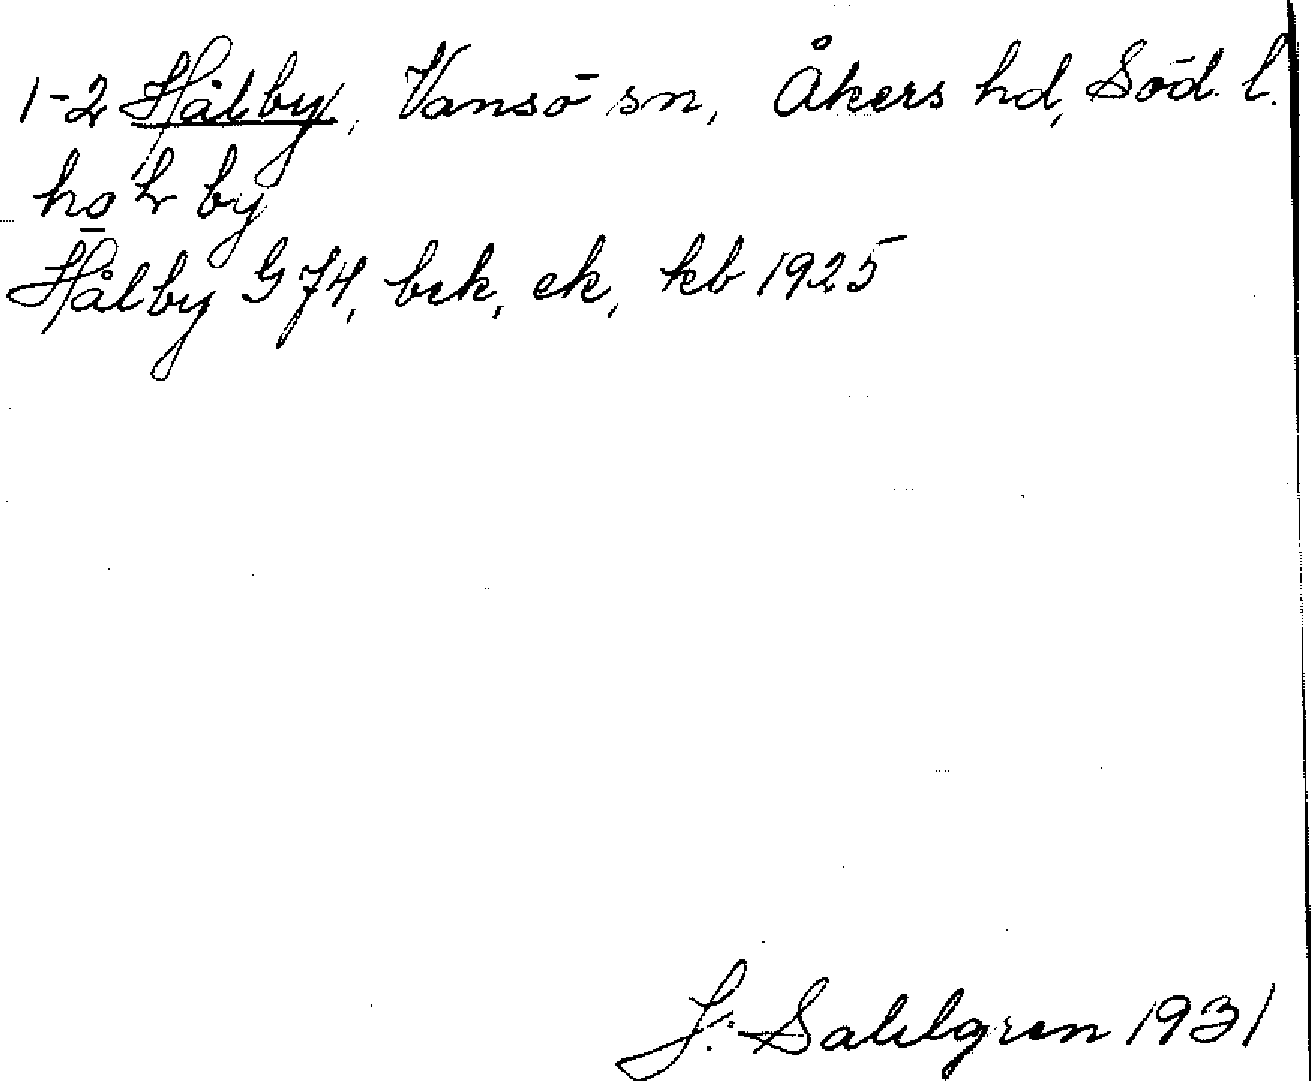 1-2 Hålby, Vansö sn, Åkers hd, Söd. l.
by
Hålby G 74, bek, ek, kb 1925
J. Sahlgren 1931